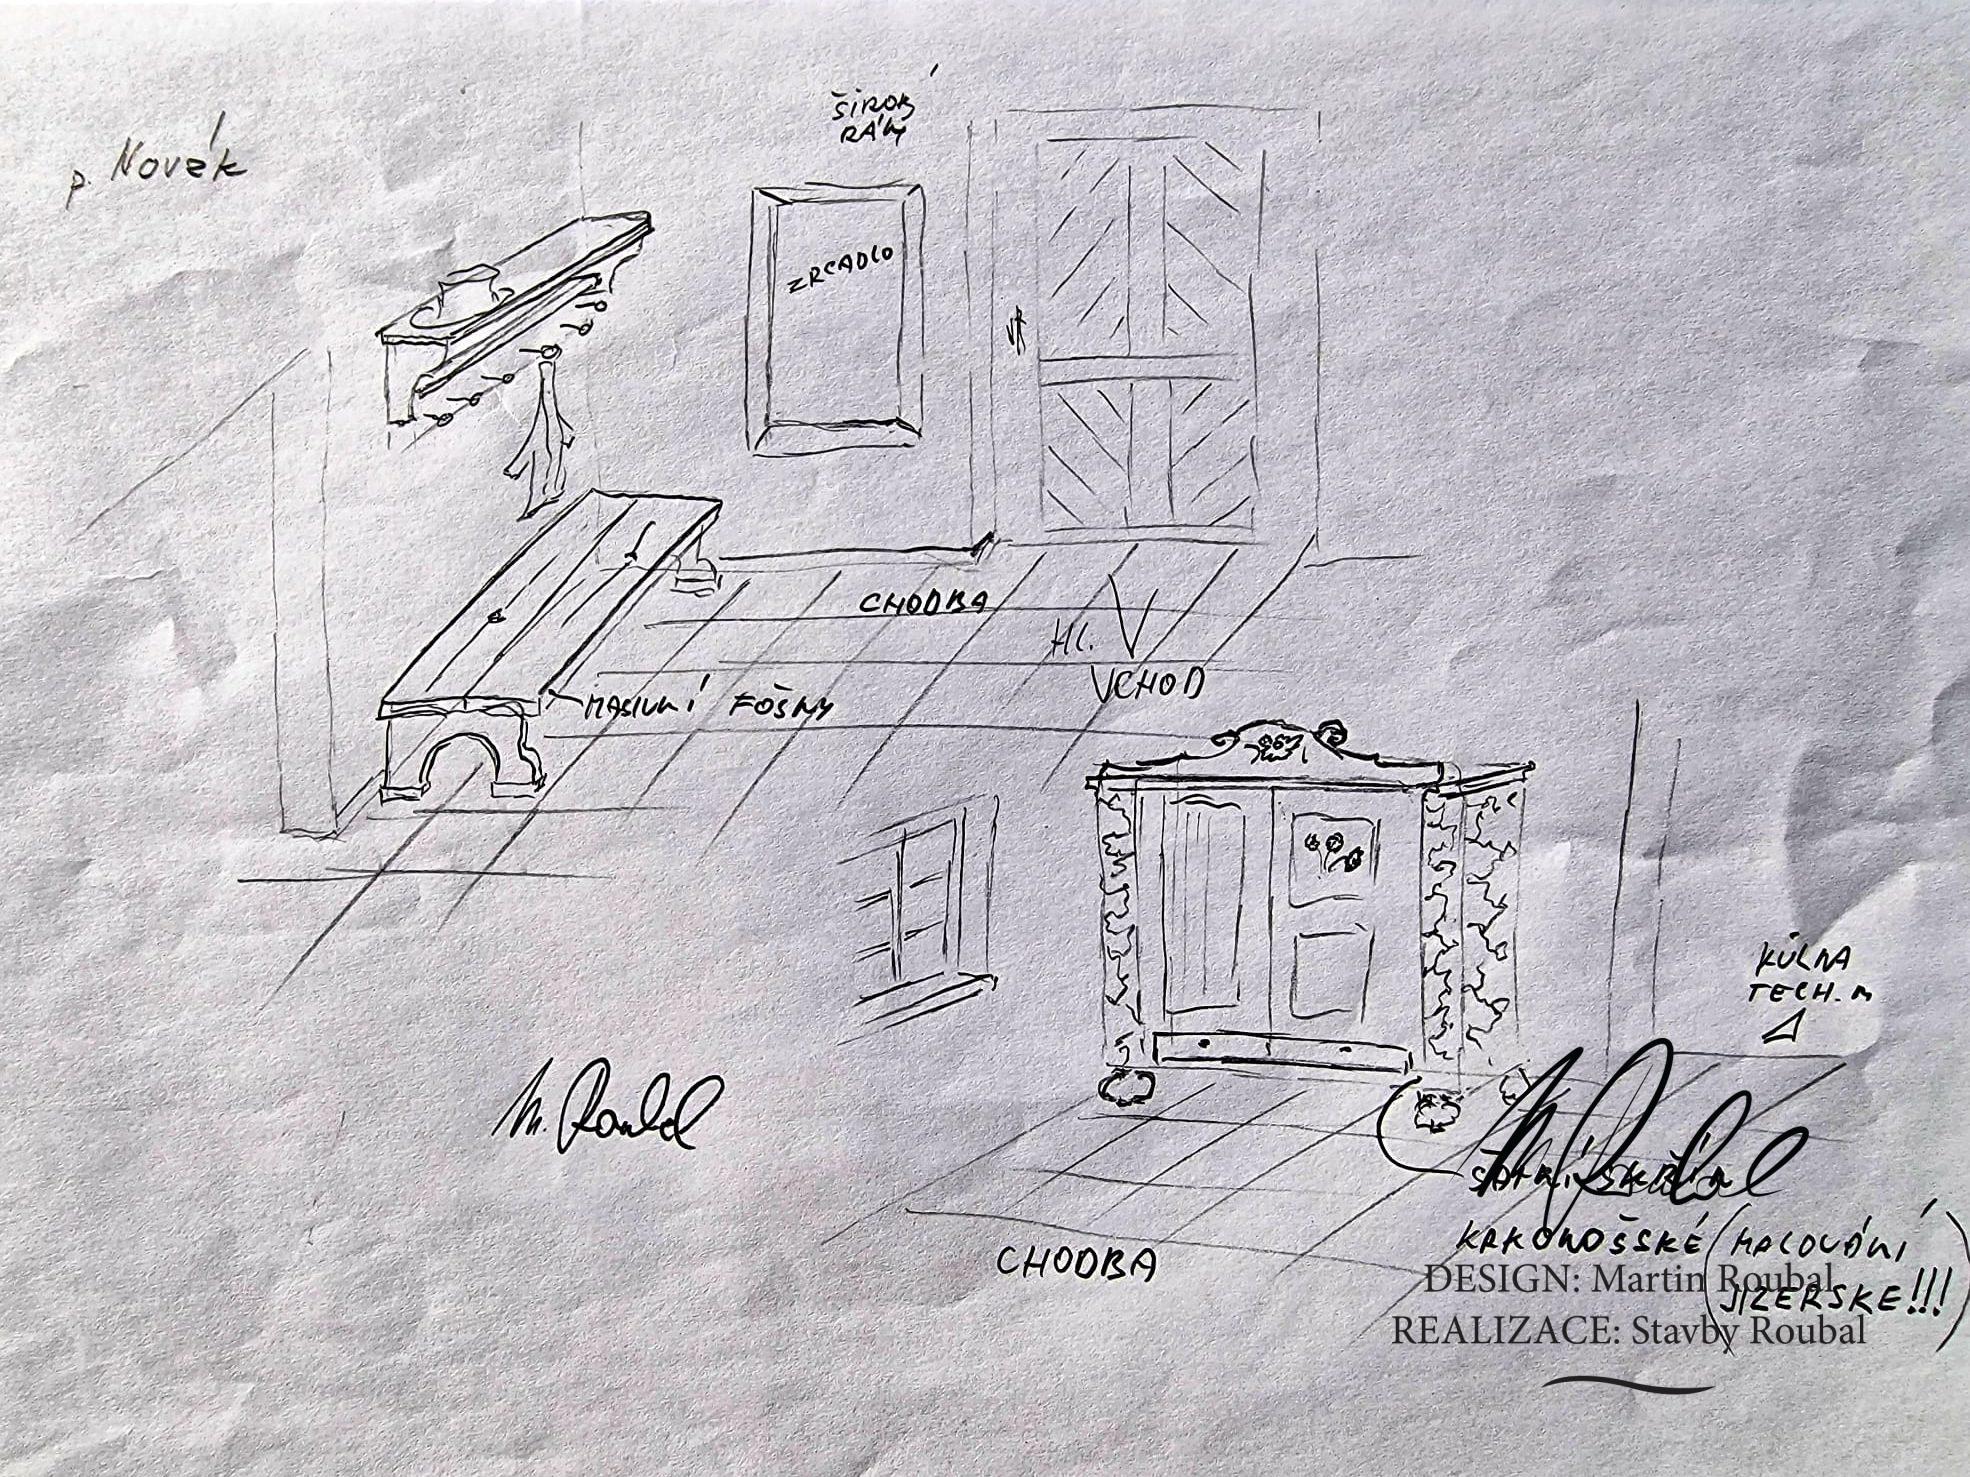 p. Novák
ŠIROKÝ
RÁM
ZRCADLO
CHODBA
HL.
VCHOD
MASIVNÍ FOŠNY
KŮLNA
TECH. M
M. Roubal
M. Roubal
ŠATNÍ SKŘÍŇ
KRKONOŠSKÉ (MALOVÁNÍ
JIZERSKÉ!!!)
CHODBA
DESIGN: Martin Roubal
REALIZACE: Stavby Roubal